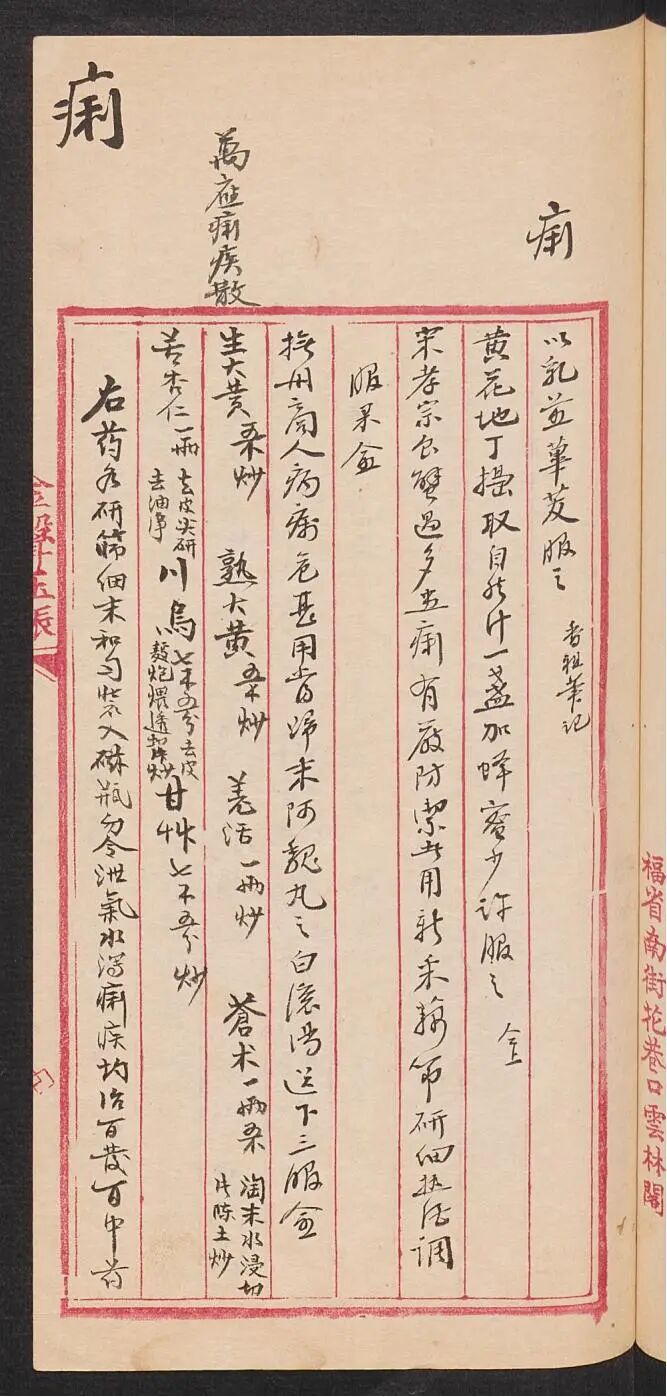 痢
以乳煎蓽茇服之 香祖筆記
黄花地丁搗取自然汁一盞加蜂蜜少許服之 仝上
宋孝宗食蟹過多患痢有嚴防禦者用新采藕節研細熱酒調
服果愈
撫州商人病痢危甚用當歸末阿魏丸之白滾湯送下三服愈
萬应痢疾散
生大黄 炒
熟大黄 炒
羌活一兩炒
蒼术一兩 淘米水浸切片陈土炒
苦杏仁一兩 去皮尖研去油淨
川烏七 五分去皮 麵炮煨透切片炒
甘艸七 五分炒
右药各研篩細末和匀裝入磁瓶勿令泄氣水瀉痢疾均治百發百中 若
痢
福省南街花巷口雲林閣